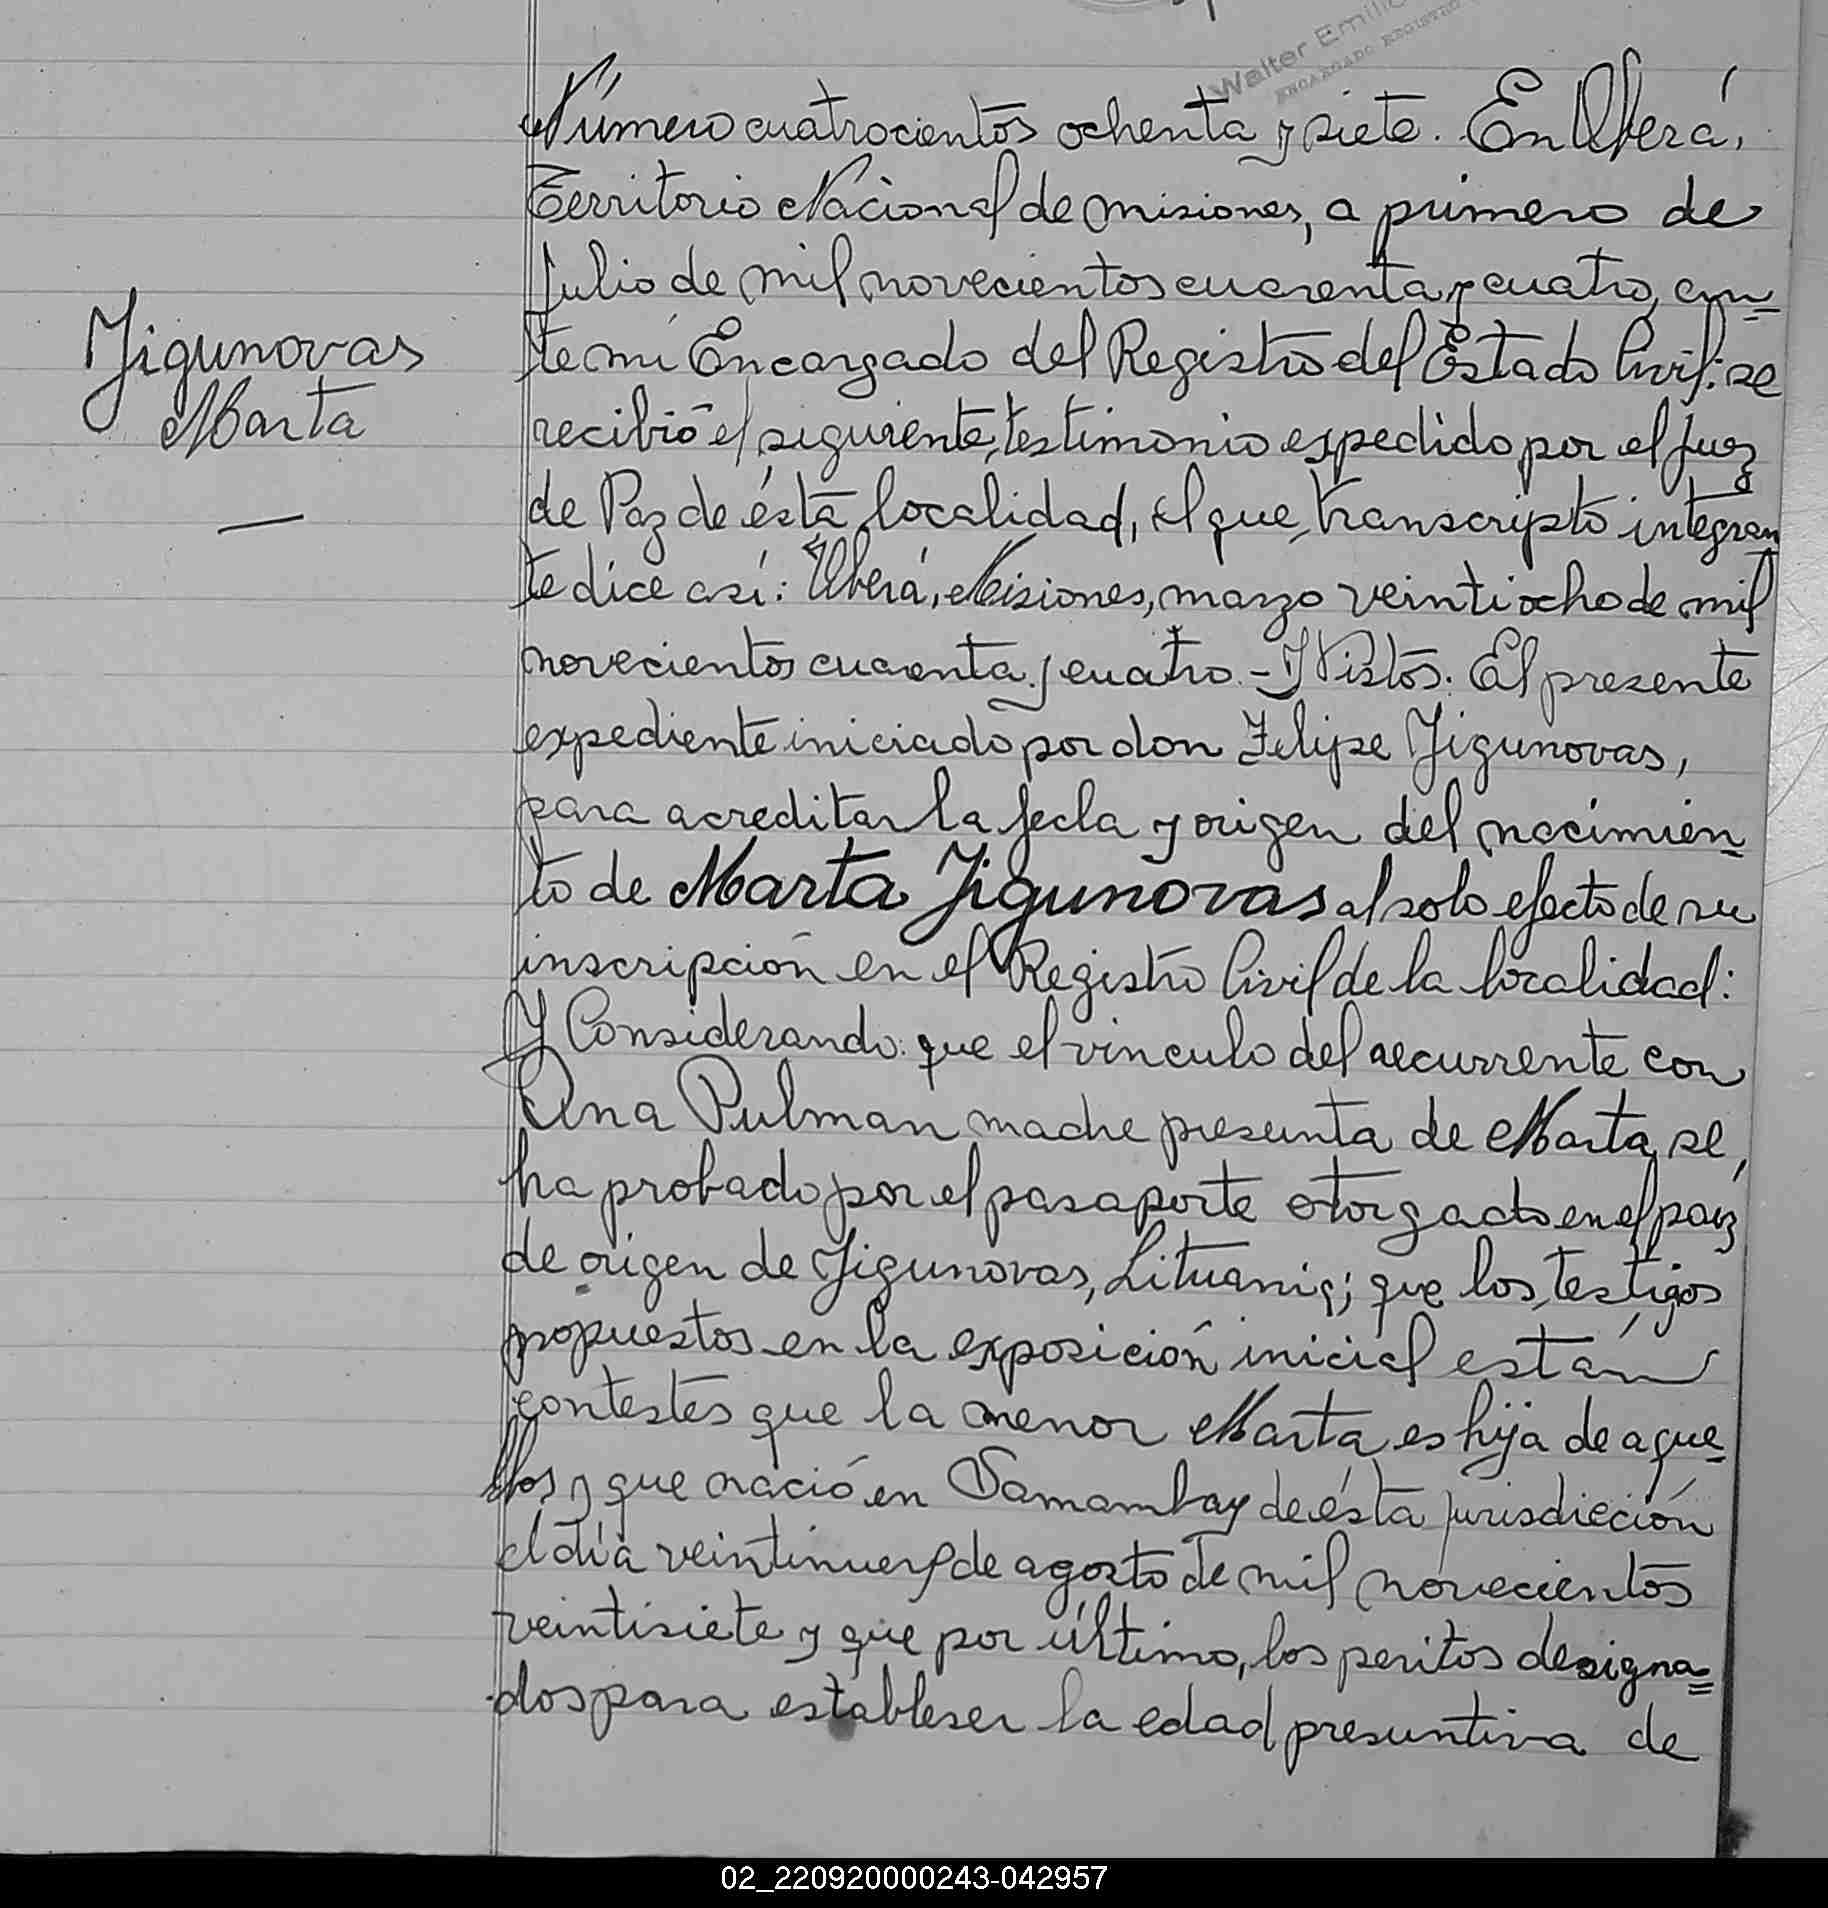 Walter Emilio
ENCARGADO REGISTRO
Número cuatrocientos ochenta y siete. En Oberá,
Territorio Nacional de misiones, a primero de
julio de mil novecientos cuarenta y cuatro, an=
te mí Encargado del Registro del Estado Civil: se
recibió el siguiente, testimonio expedido por el juez
de Paz de ésta localidad, el que, transcripto integran
te dice así: Oberá, Misiones, marzo veintiocho de mil
novecientos cuarenta y cuatro.- Y Vistos: El presente
expediente iniciado por don Felipe Jigunovas,
para acreditar la fecha y origen del nacimien=
to de Marta Jigunovas al solo efecto de su
inscripción en el Registro Civil de la localidad:
Y Considerando: que el vinculo del recurrente con
Ana Pulman madre presunta de Marta, se
ha probado por el pasaporte otorgado en el paiz
de origen de Jigunovas, Lituania; que los testigos
propuestos en la exposición inicial están
contestes que la menor Marta es hija de aque
llos y que nació en Samambay de ésta jurisdicción
el día veintinueve de agosto de mil novecientos
veintisiete y que por último, los peritos designa=
dos para estableser la edad presuntiva de
Jigunovas
Marta
—
02_220920000243-042957